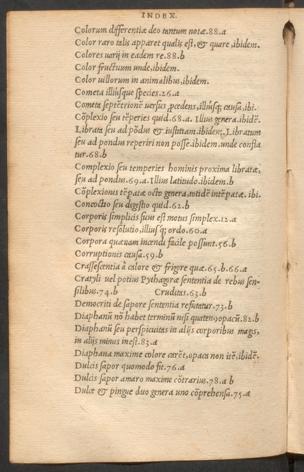 INDEX.
Colorum differentiæ deo tantum notæ.88.a
Color raro talis apparet qualis est,& quare,ibidem.
Colores varij in eadem re.88.b
Color fructuum unde,ibidem.
Color uillorum in animalibus,ibidem.
Cometa illiusque species.26.a
Cometa septētrionē versus p̄cedens,illiusq; causa,ibi.
Cōplexio seu tēperies quid.68.a. Illius genera.ibidē.
Librata seu ad pōdus & iustitiam.ibidem; Libratum
seu ad pondus reperiri non posse.ibidem.unde consta
tur.68.b
Complexio seu temperies hominis proxima libratæ,
seu ad pondus.69.a.Illius latitudo.ibidem.b
Cōplexionis tēpatæ octo genera,totidē intēpatæ.ibi.
Concoctio seu degestio quid.62.b
Corporis simplicis sicut est motus simplex.12.a
Corporis resolutio,illiusq; ordo.60.a
Corpora quænam incendi facile possunt.56.b
Corruptionis causa.59.b
Crassescentia à calore & frigore quæ.65.b.66.a
Cratyli vel potius Pythagoræ sententia de rebus sen-
silibus.74.b Cruditas.63.b
Democriti de sapore sententia refutatur.73.b
Diaphanū nō habet terminū nisi quatenus opacū.82.b
Diaphanū seu perspicuitas in alijs corporibus magis,
in alijs minus inest.83.a
Diaphana maxime colore carēt,opaca non itē.ibidē.
Dulcis sapor quomodo fit.76.a
Dulcis sapor amaro maxime cōtrarius.78.a b
Dulce & pingue duo genera uno cōprehensa.75.a